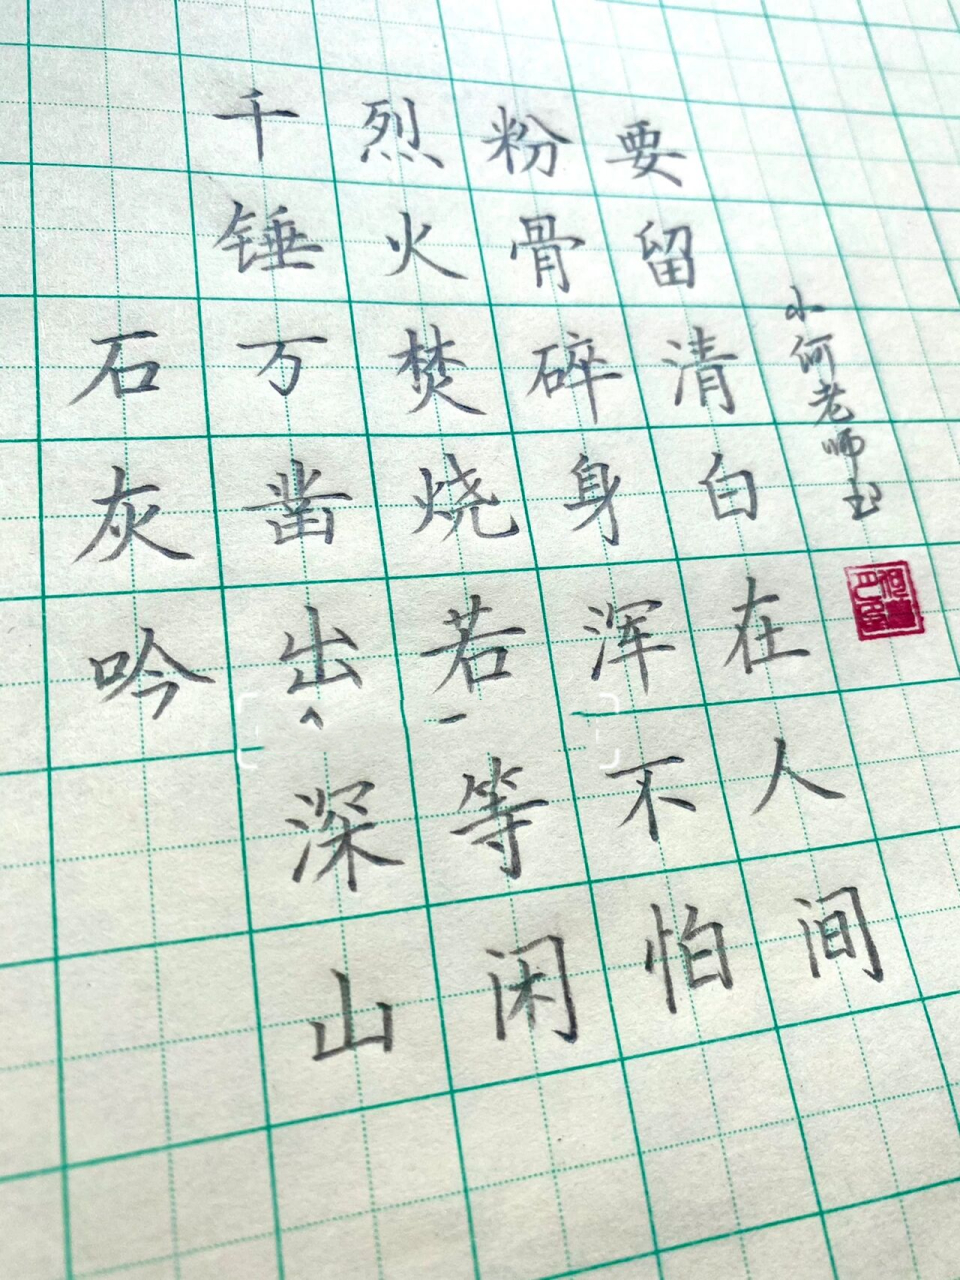 石灰吟
千锤万凿出深山
烈火焚烧若等闲
粉骨碎身浑不怕
要留清白在人间
小何老师书